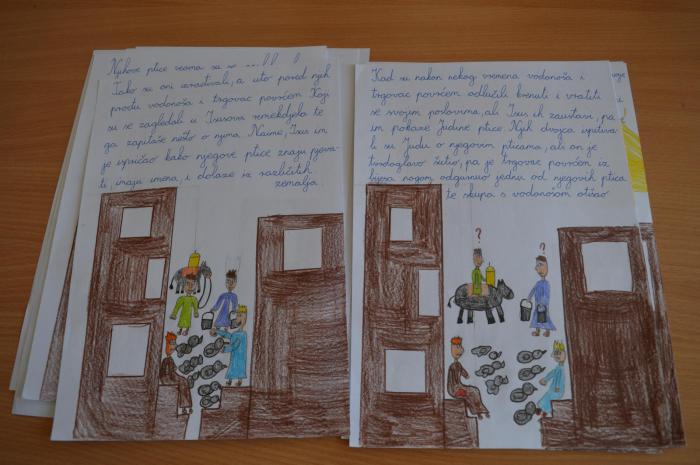 Njihove ptice veoma su
Tako su oni izrađivali, a uto pored njih
prođu vodonoša i trgovac povrćem Koji
su se zagledali u Isusova remekdjela te
ga zapitaše nešto o njima. Naime, Isus im
je ispričao kako njegove ptice znaju pjeva-
ti, imaju imena, i dolaze iz različitih
zemalja
Kad su nakon nekog vremena vodonoša i
trgovac povrćem odlučili krenuti i vratiti
se svojim poslovima, ali Isus ih zaustavi, pa
im pokaze Judine ptice. Njih dvojca upitiva
li su Judu o njegovim pticama, ali on je
tvrdoglavo šutio, pa je trgovac povrćem iz
bijesa nogom odgurnuo jednu od njegovih ptica
te skupa s vodonosom otišao
?
?